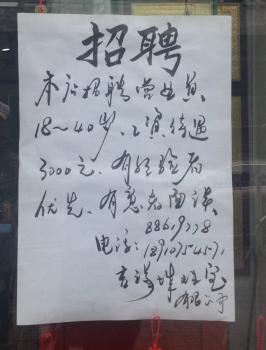 招聘
本店招聘营业员、
18～40岁、工资待遇
3000元、有经验者
优先、有意者面谈、
电话:
吉祥
有限公司